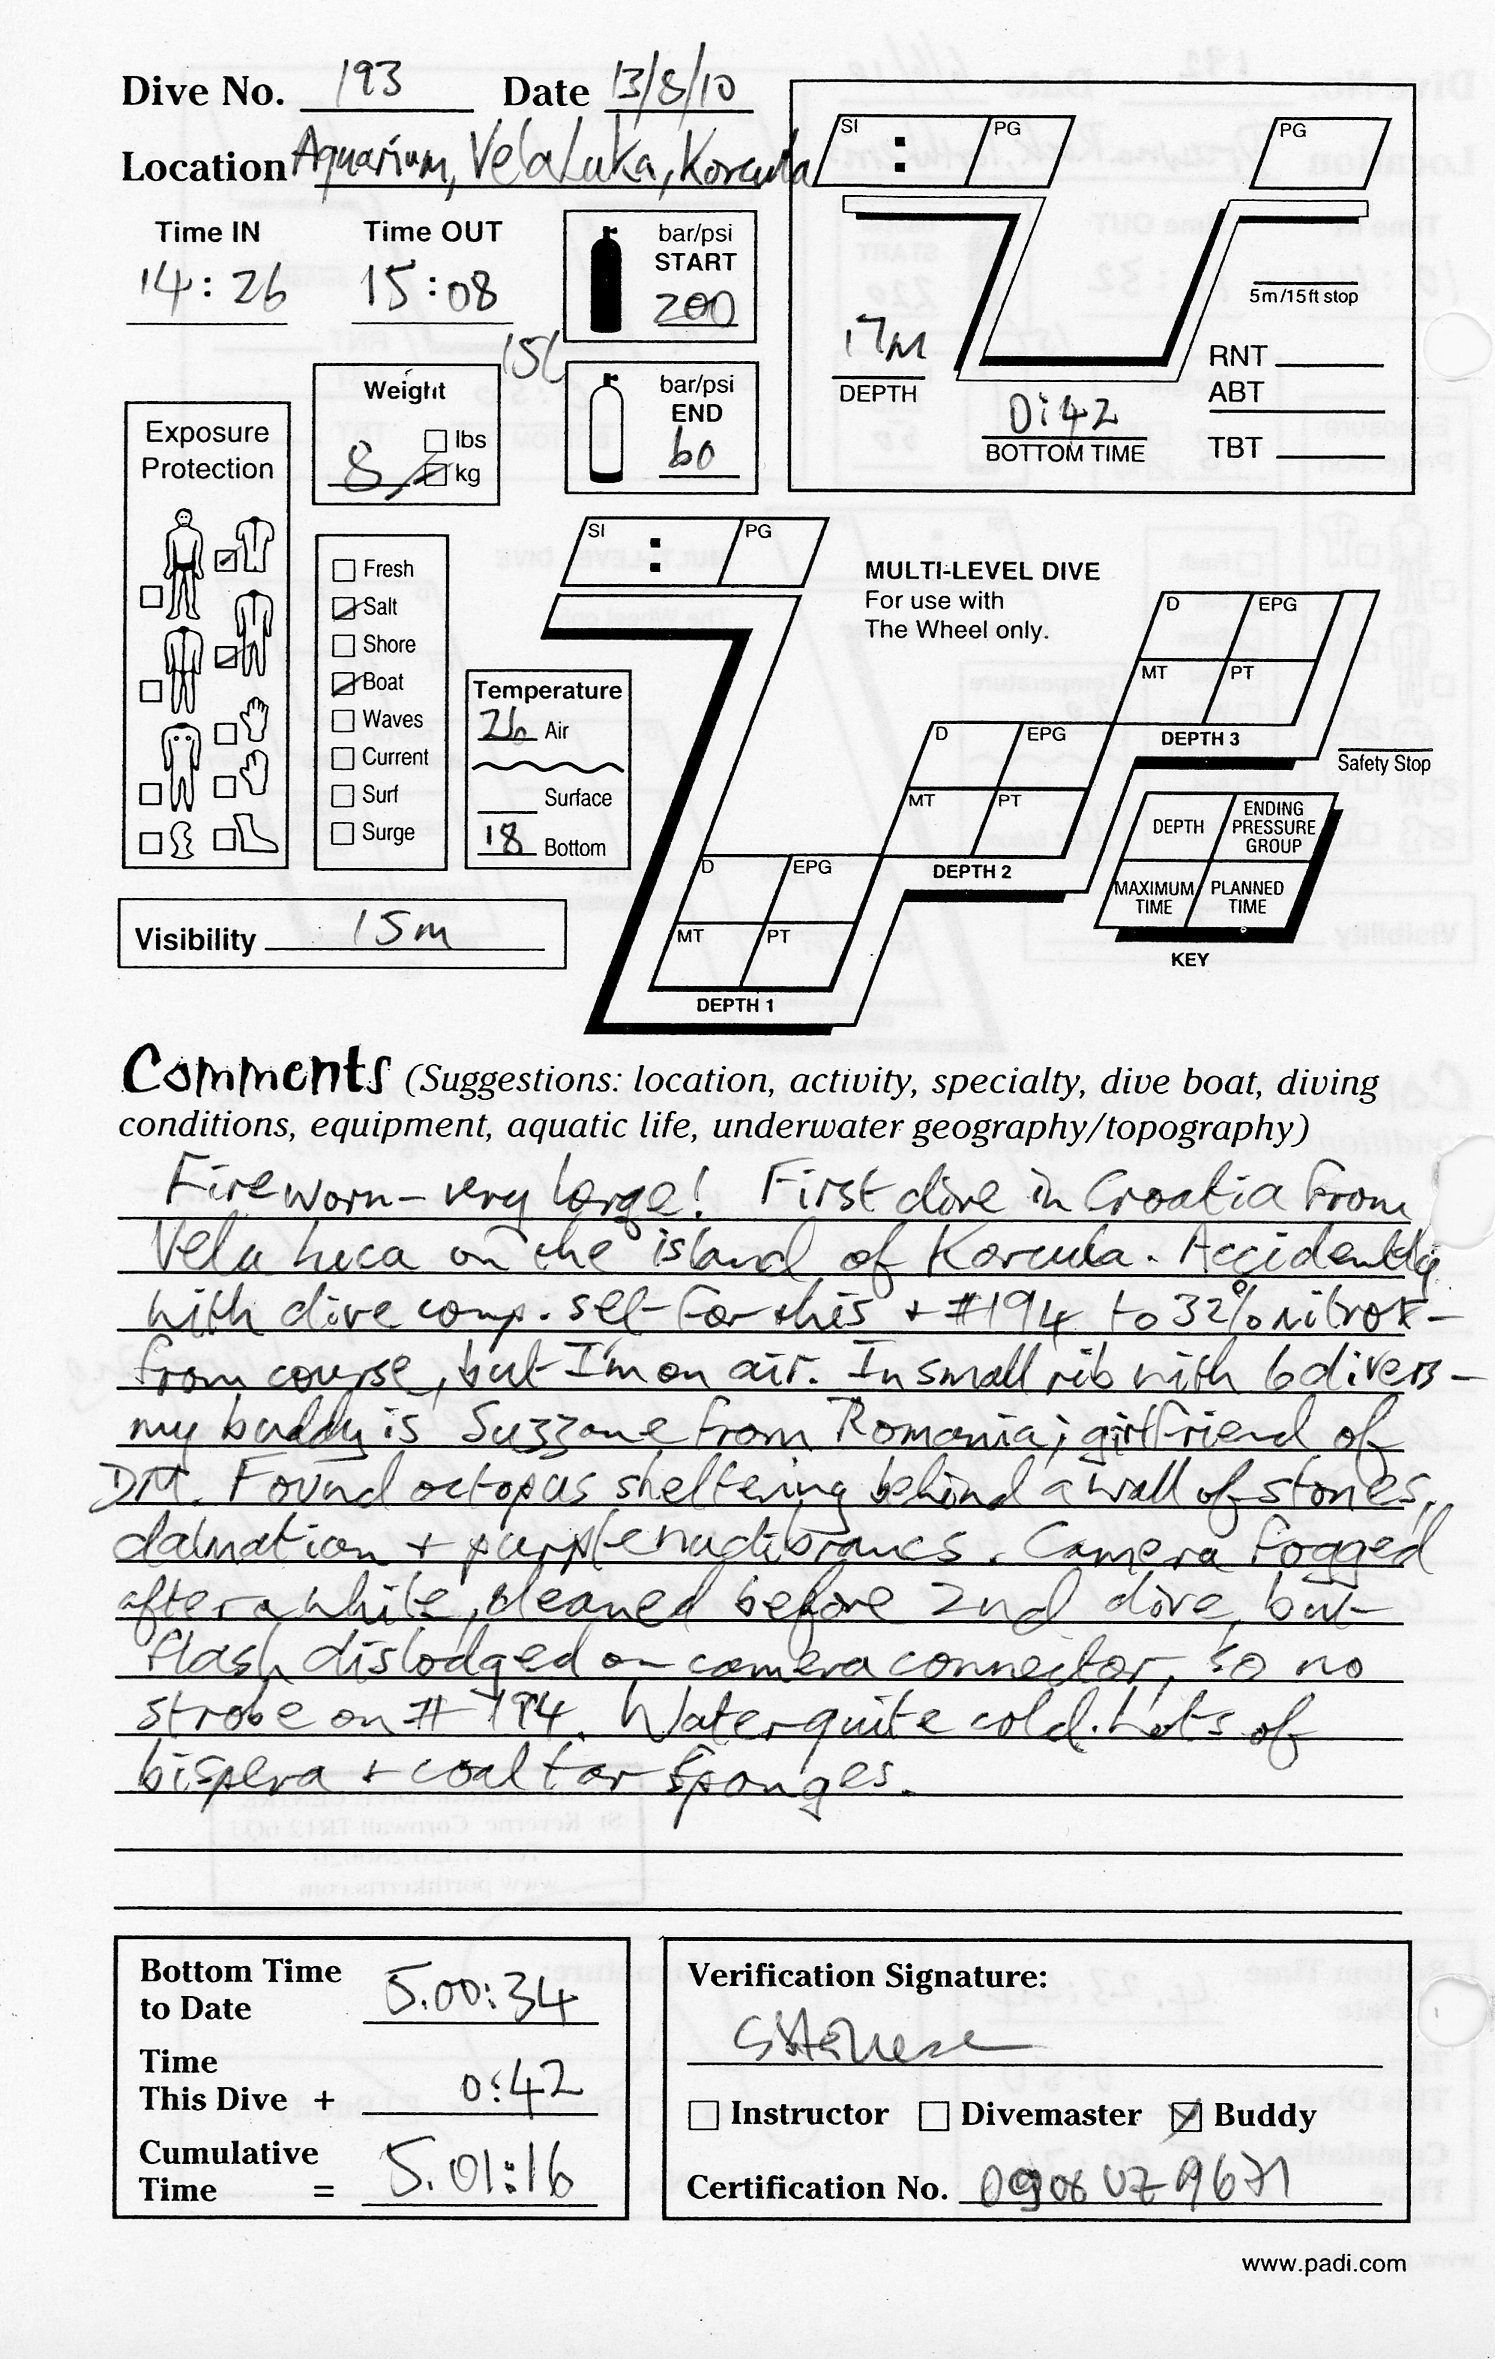 Dive No. 193 Date 13/8/10
Location Aquarium, Vela Luka, Korcula
SI : PG PG
Time IN Time OUT
14:26 15:08
bar/psi
START
200
5m/15ft stop
17m
DEPTH
0:42
BOTTOM TIME
RNT
ABT
TBT
15L
Weight
lbs
8 kg
bar/psi
END
60
Exposure
Protection
Fresh
Salt
Shore
Boat
Waves
Current
Surf
Surge
SI : PG
MULTI-LEVEL DIVE
For use with
The Wheel only.
Temperature
26 Air
Surface
18 Bottom
D EPG
MT PT
DEPTH 3
Safety Stop
D EPG
MT PT
DEPTH 2
D EPG
MT PT
DEPTH 1
DEPTH ENDING PRESSURE GROUP
MAXIMUM TIME PLANNED TIME
KEY
Visibility 15m
Comments (Suggestions: location, activity, specialty, dive boat, diving
conditions, equipment, aquatic life, underwater geography/topography)
Fireworm - very large! First dive in Croatia from
Vela Luca on the island of Korcula. Accidently
with dive comp. set for this + #194 to 32% nitrox -
from course, but I'm on air. In small rib with 6 divers -
my buddy is Suzzane from Romania; girlfriend of
DM. Found octopus sheltering behind a wall of stones,
dalmation + purple nudibrancs. Camera fogged
after a while, cleaned before 2nd dive, but
flash dislodged on camera connector, so no
strobe on #194. Water quite cold. Lots of
bispera + coal tar sponges.
Bottom Time
to Date 5.00:34
Time
This Dive + 0:42
Cumulative
Time = 5.01:16
Verification Signature:
Instructor Divemaster Buddy
Certification No. 0908UZ9671
www.padi.com